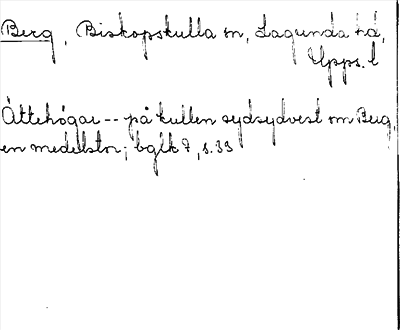 Berg, Biskopskulla sn, Lagunda hd,
Upps. l
Ättehögar -- på kullen sydsydvest om Berg,
en medelstor; bglk 7, s. 33